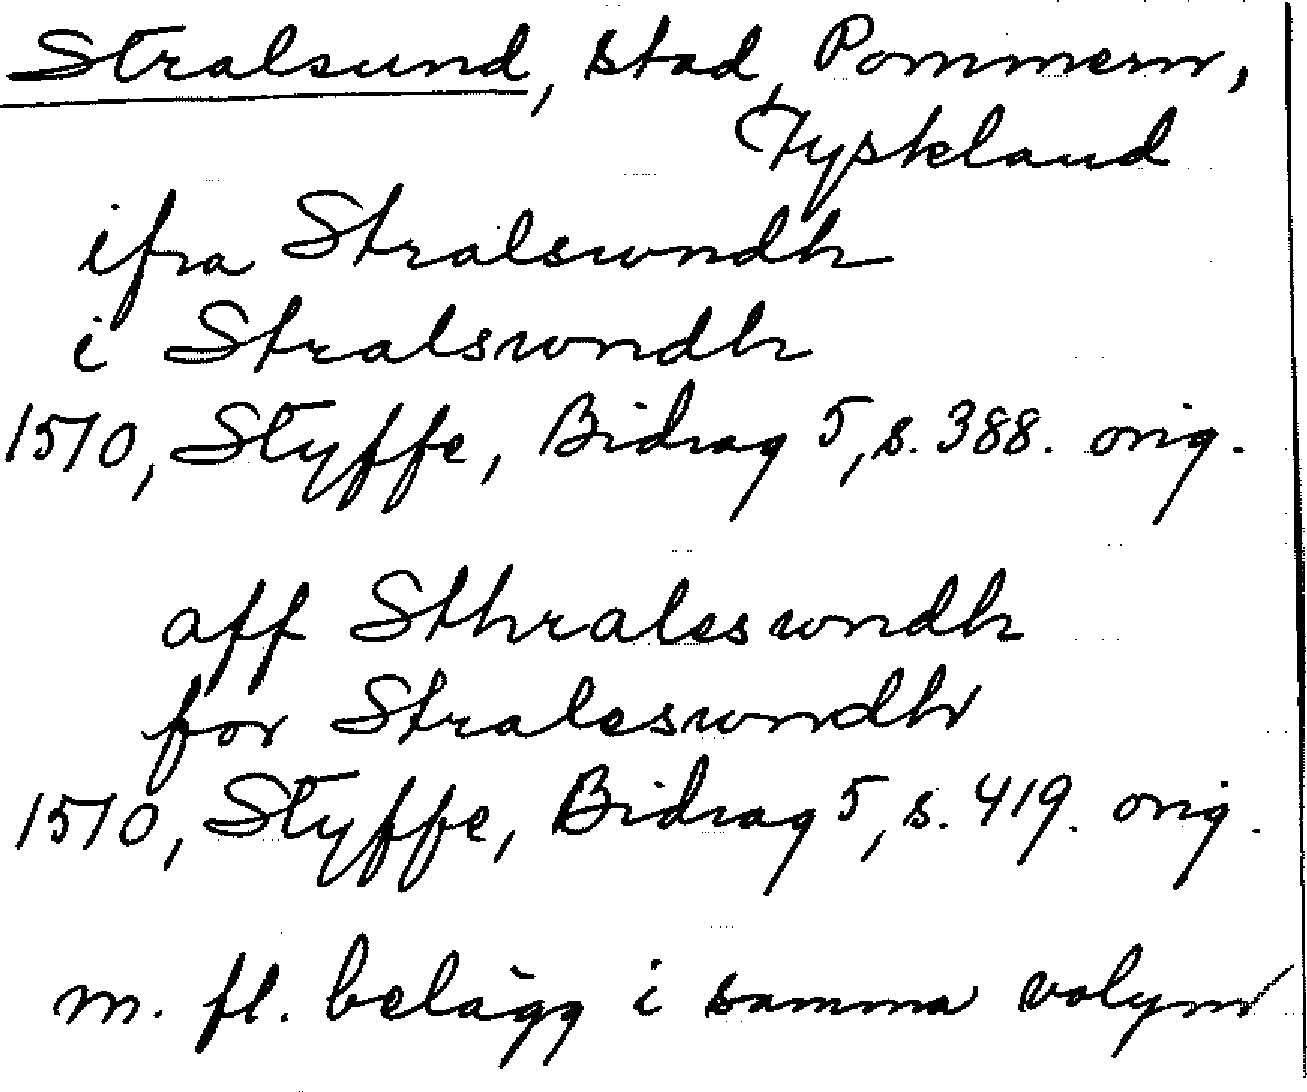 Stralsund, stad, Pommern,
Tyskland
ifra Stralswndh
i Stralswndh
1510, Styffe, Bidrag 5, s. 388. orig.
aff Sthraleswndh
for Straleswndh
1510, Styffe, Bidrag 5, s. 419. orig.
m. fl. belägg i samma volym